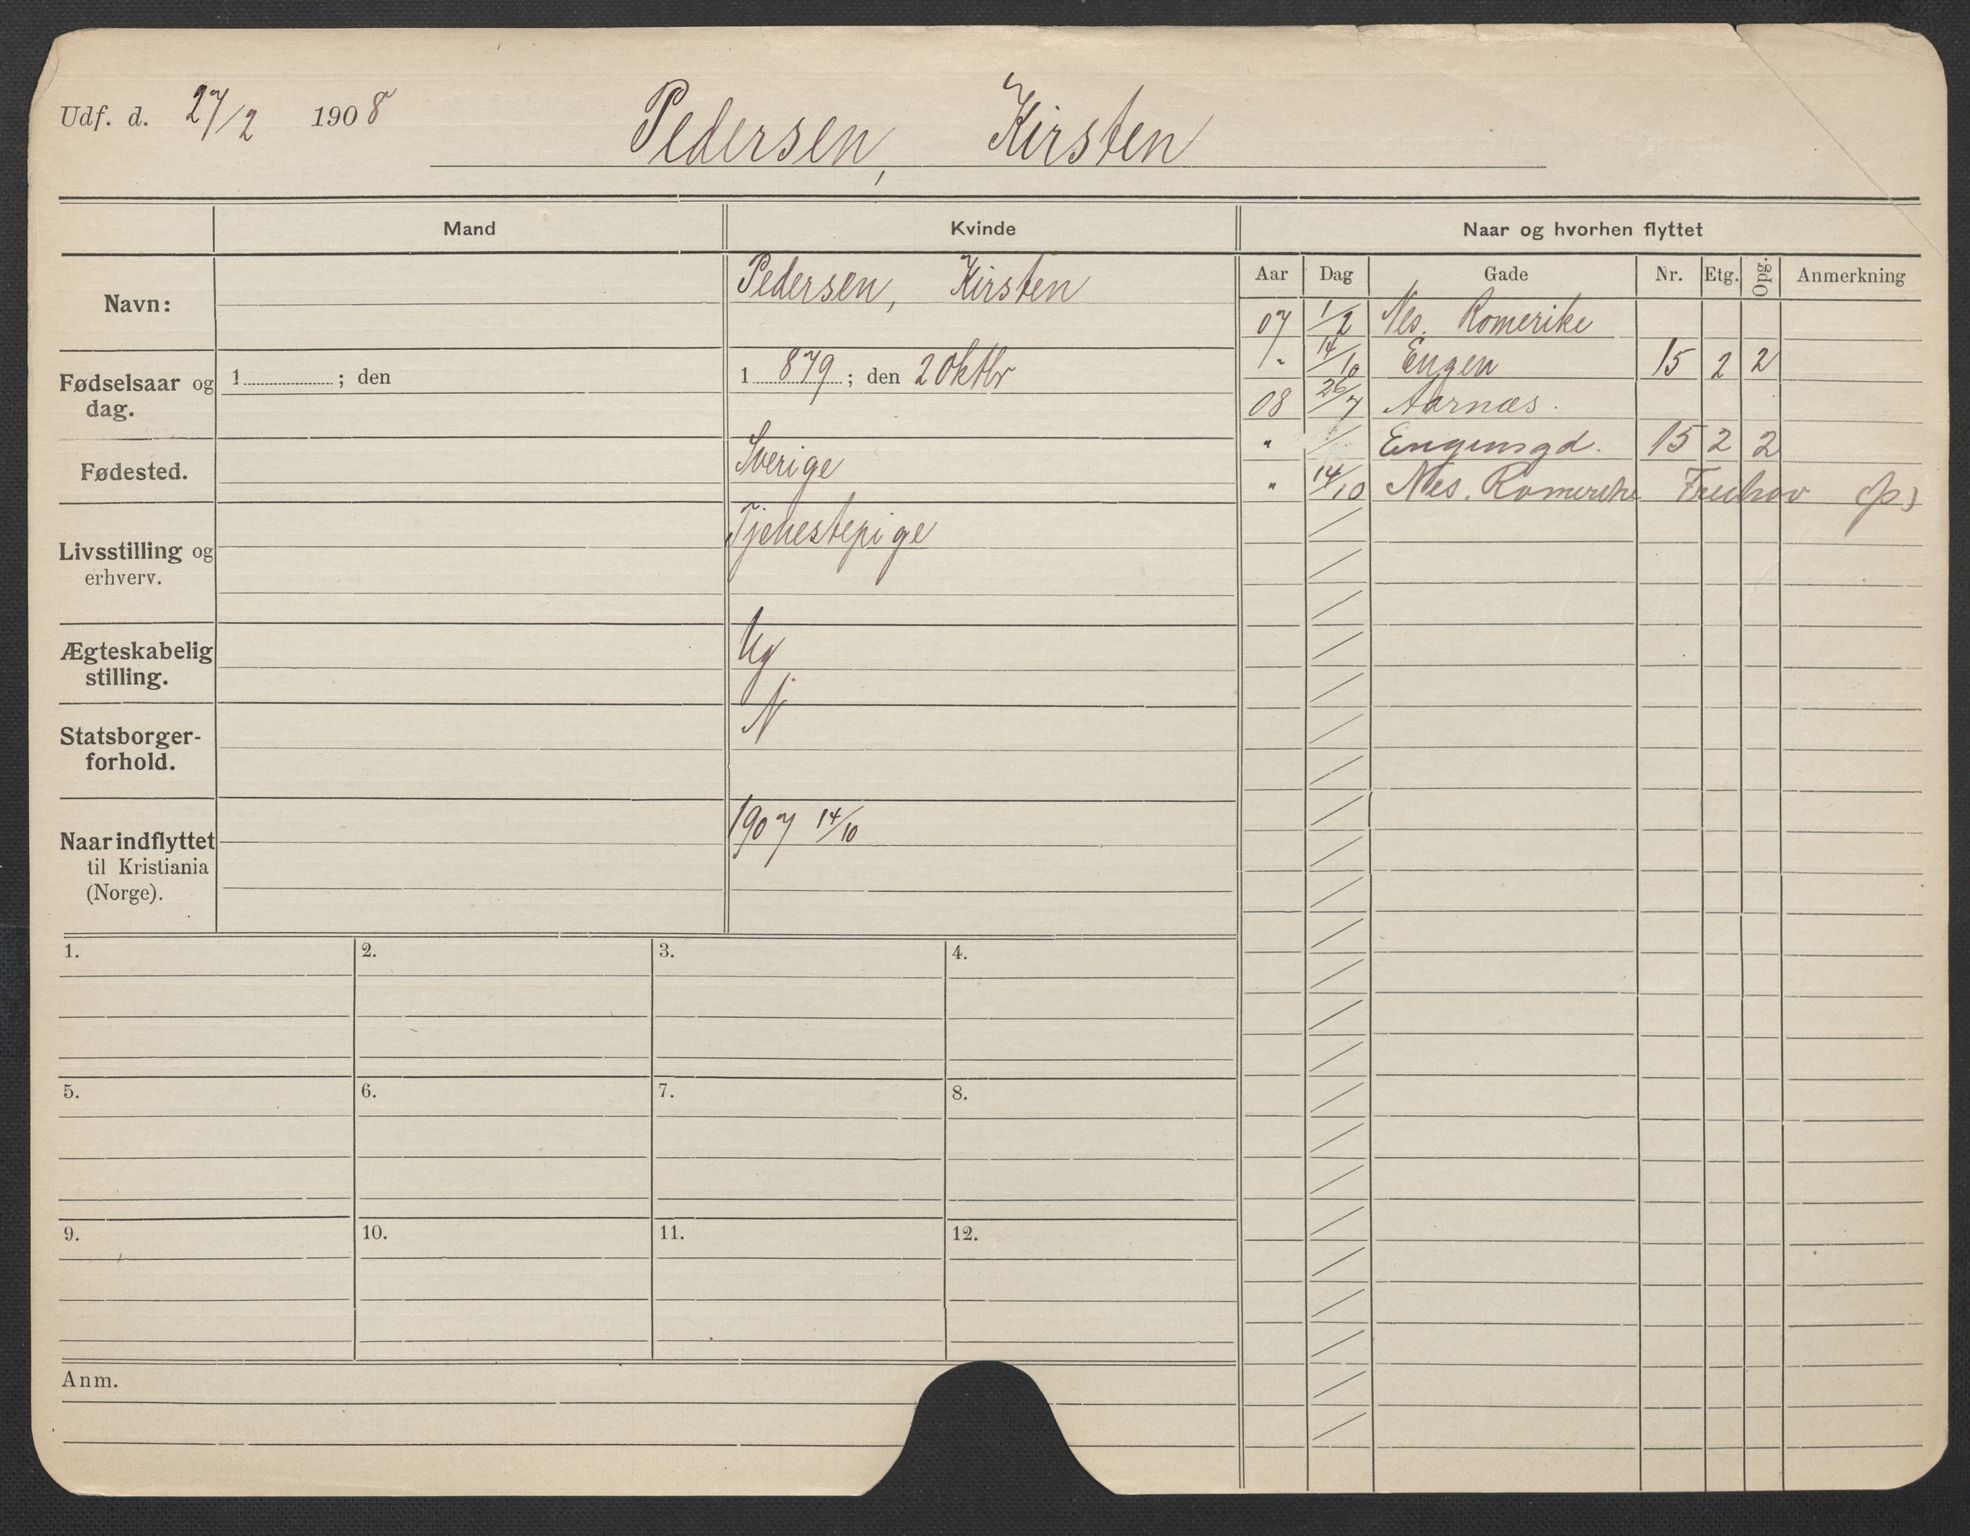 Udf. d. 27/2 1908
Pedersen, Kirsten
Mand
Kvinde
Naar og hvorhen flyttet
Aar Dag Gade Nr. Etg. Opg. Anmerkning
Navn:
Pedersen, Kirsten
Fødselsaar og dag.
1 ; den
1 879 ; den 2 oktbr
Fødested.
Sverige
Livsstilling og erhverv.
Tjenestepige
Ægteskabelig stilling.
Ug
Statsborger-
forhold.
N
Naar indflyttet
til Kristiania
(Norge).
1907 14/10
07 1/2 Nes. Romerike
" 14/10 Engen 15 2 2
08 26/7 Aarnæs.
" / Engensgd. 15 2 2
" 14/10 Nes. Romerike
1. 2. 3. 4.
5. 6. 7. 8.
9. 10. 11. 12.
Anm.